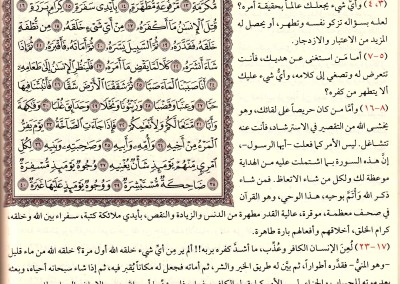 مُّكَرَّمَةٍ ١٣ مَّرْفُوعَةٍ مُّطَهَّرَةٍ ١٤ بِأَيْدِي سَفَرَةٍ ١٥ كِرَامٍ بَرَرَةٍ ١٦
قُتِلَ الْإِنسَانُ مَا أَكْفَرَهُ ١٧ مِنْ أَيِّ شَيْءٍ خَلَقَهُ ١٨ مِن نُّطْفَةٍ
خَلَقَهُ فَقَدَّرَهُ ١٩ ثُمَّ السَّبِيلَ يَسَّرَهُ ٢٠ ثُمَّ أَمَاتَهُ فَأَقْبَرَهُ ٢١ ثُمَّ إِذَا
شَاءَ أَنشَرَهُ ٢٢ كَلَّا لَمَّا يَقْضِ مَا أَمَرَهُ ٢٣ فَلْيَنظُرِ الْإِنسَانُ إِلَىٰ طَعَامِهِ ٢٤
أَنَّا صَبَبْنَا الْمَاءَ صَبًّا ٢٥ ثُمَّ شَقَقْنَا الْأَرْضَ شَقًّا ٢٦ فَأَنبَتْنَا فِيهَا
حَبًّا ٢٧ وَعِنَبًا وَقَضْبًا ٢٨ وَزَيْتُونًا وَنَخْلًا ٢٩ وَحَدَائِقَ غُلْبًا ٣٠ وَفَاكِهَةً
وَأَبًّا ٣١ مَّتَاعًا لَّكُمْ وَلِأَنْعَامِكُمْ ٣٢ فَإِذَا جَاءَتِ الصَّاخَّةُ ٣٣ يَوْمَ يَفِرُّ
الْمَرْءُ مِنْ أَخِيهِ ٣٤ وَأُمِّهِ وَأَبِيهِ ٣٥ وَصَاحِبَتِهِ وَبَنِيهِ ٣٦ لِكُلِّ
امْرِئٍ مِّنْهُمْ يَوْمَئِذٍ شَأْنٌ يُغْنِيهِ ٣٧ وُجُوهٌ يَوْمَئِذٍ مُّسْفِرَةٌ ٣٨
ضَاحِكَةٌ مُّسْتَبْشِرَةٌ ٣٩ وَوُجُوهٌ يَوْمَئِذٍ عَلَيْهَا غَبَرَةٌ ٤٠
(٣، ٤) وأيُّ شيء يجعلك عالماً بحقيقة أمره؟
لعله بسؤاله تزكو نفسه وتطهر، أو يحصل له
المزيد من الاعتبار والازدجار.
(٥-٧) أما مَن استغنى عن هديك، فأنت
تتعرض له وتصغي إلى كلامه، وأيُّ شيء عليك
ألا يتطهر من كفره؟
(٨-١٦) وأمَّا من كان حريصاً على لقائك، وهو
يخشى الله من التقصير في الاسترشاد، فأنت عنه
تتشاغل. ليس الأمر كما فعلت -أيها الرسول-،
إنَّ هذه السورة بما اشتملت عليه من الهداية
موعظة لك ولكل من شاء الاتعاظ. فمن شاء
ذكر الله وَأْتَمَّ بوحيه، هذا الوحي، وهو القرآن
في صحف معظمة، موقرة، عالية القدر مطهرة من الدنس والزيادة والنقص، بأيدي ملائكة كتبة، سفراء بين الله وخلقه،
كرام الخلق، أخلاقهم وأفعالهم بارة طاهرة.
(١٧-٢٣) لُعِنَ الإنسان الكافر وعُذِّب، ما أشدَّ كفره بربه!! ألم ير مِن أيِّ شيء خلقه الله أول مرة؟ خلقه الله من ماء قليل
-وهو المنيُّ- فقدَّره أطواراً، ثم بيَّن له طريق الخير والشر، ثم أماته فجعل له مكاناً يُقبر فيه، ثم إذا شاء سبحانه أحياه، وبعثه